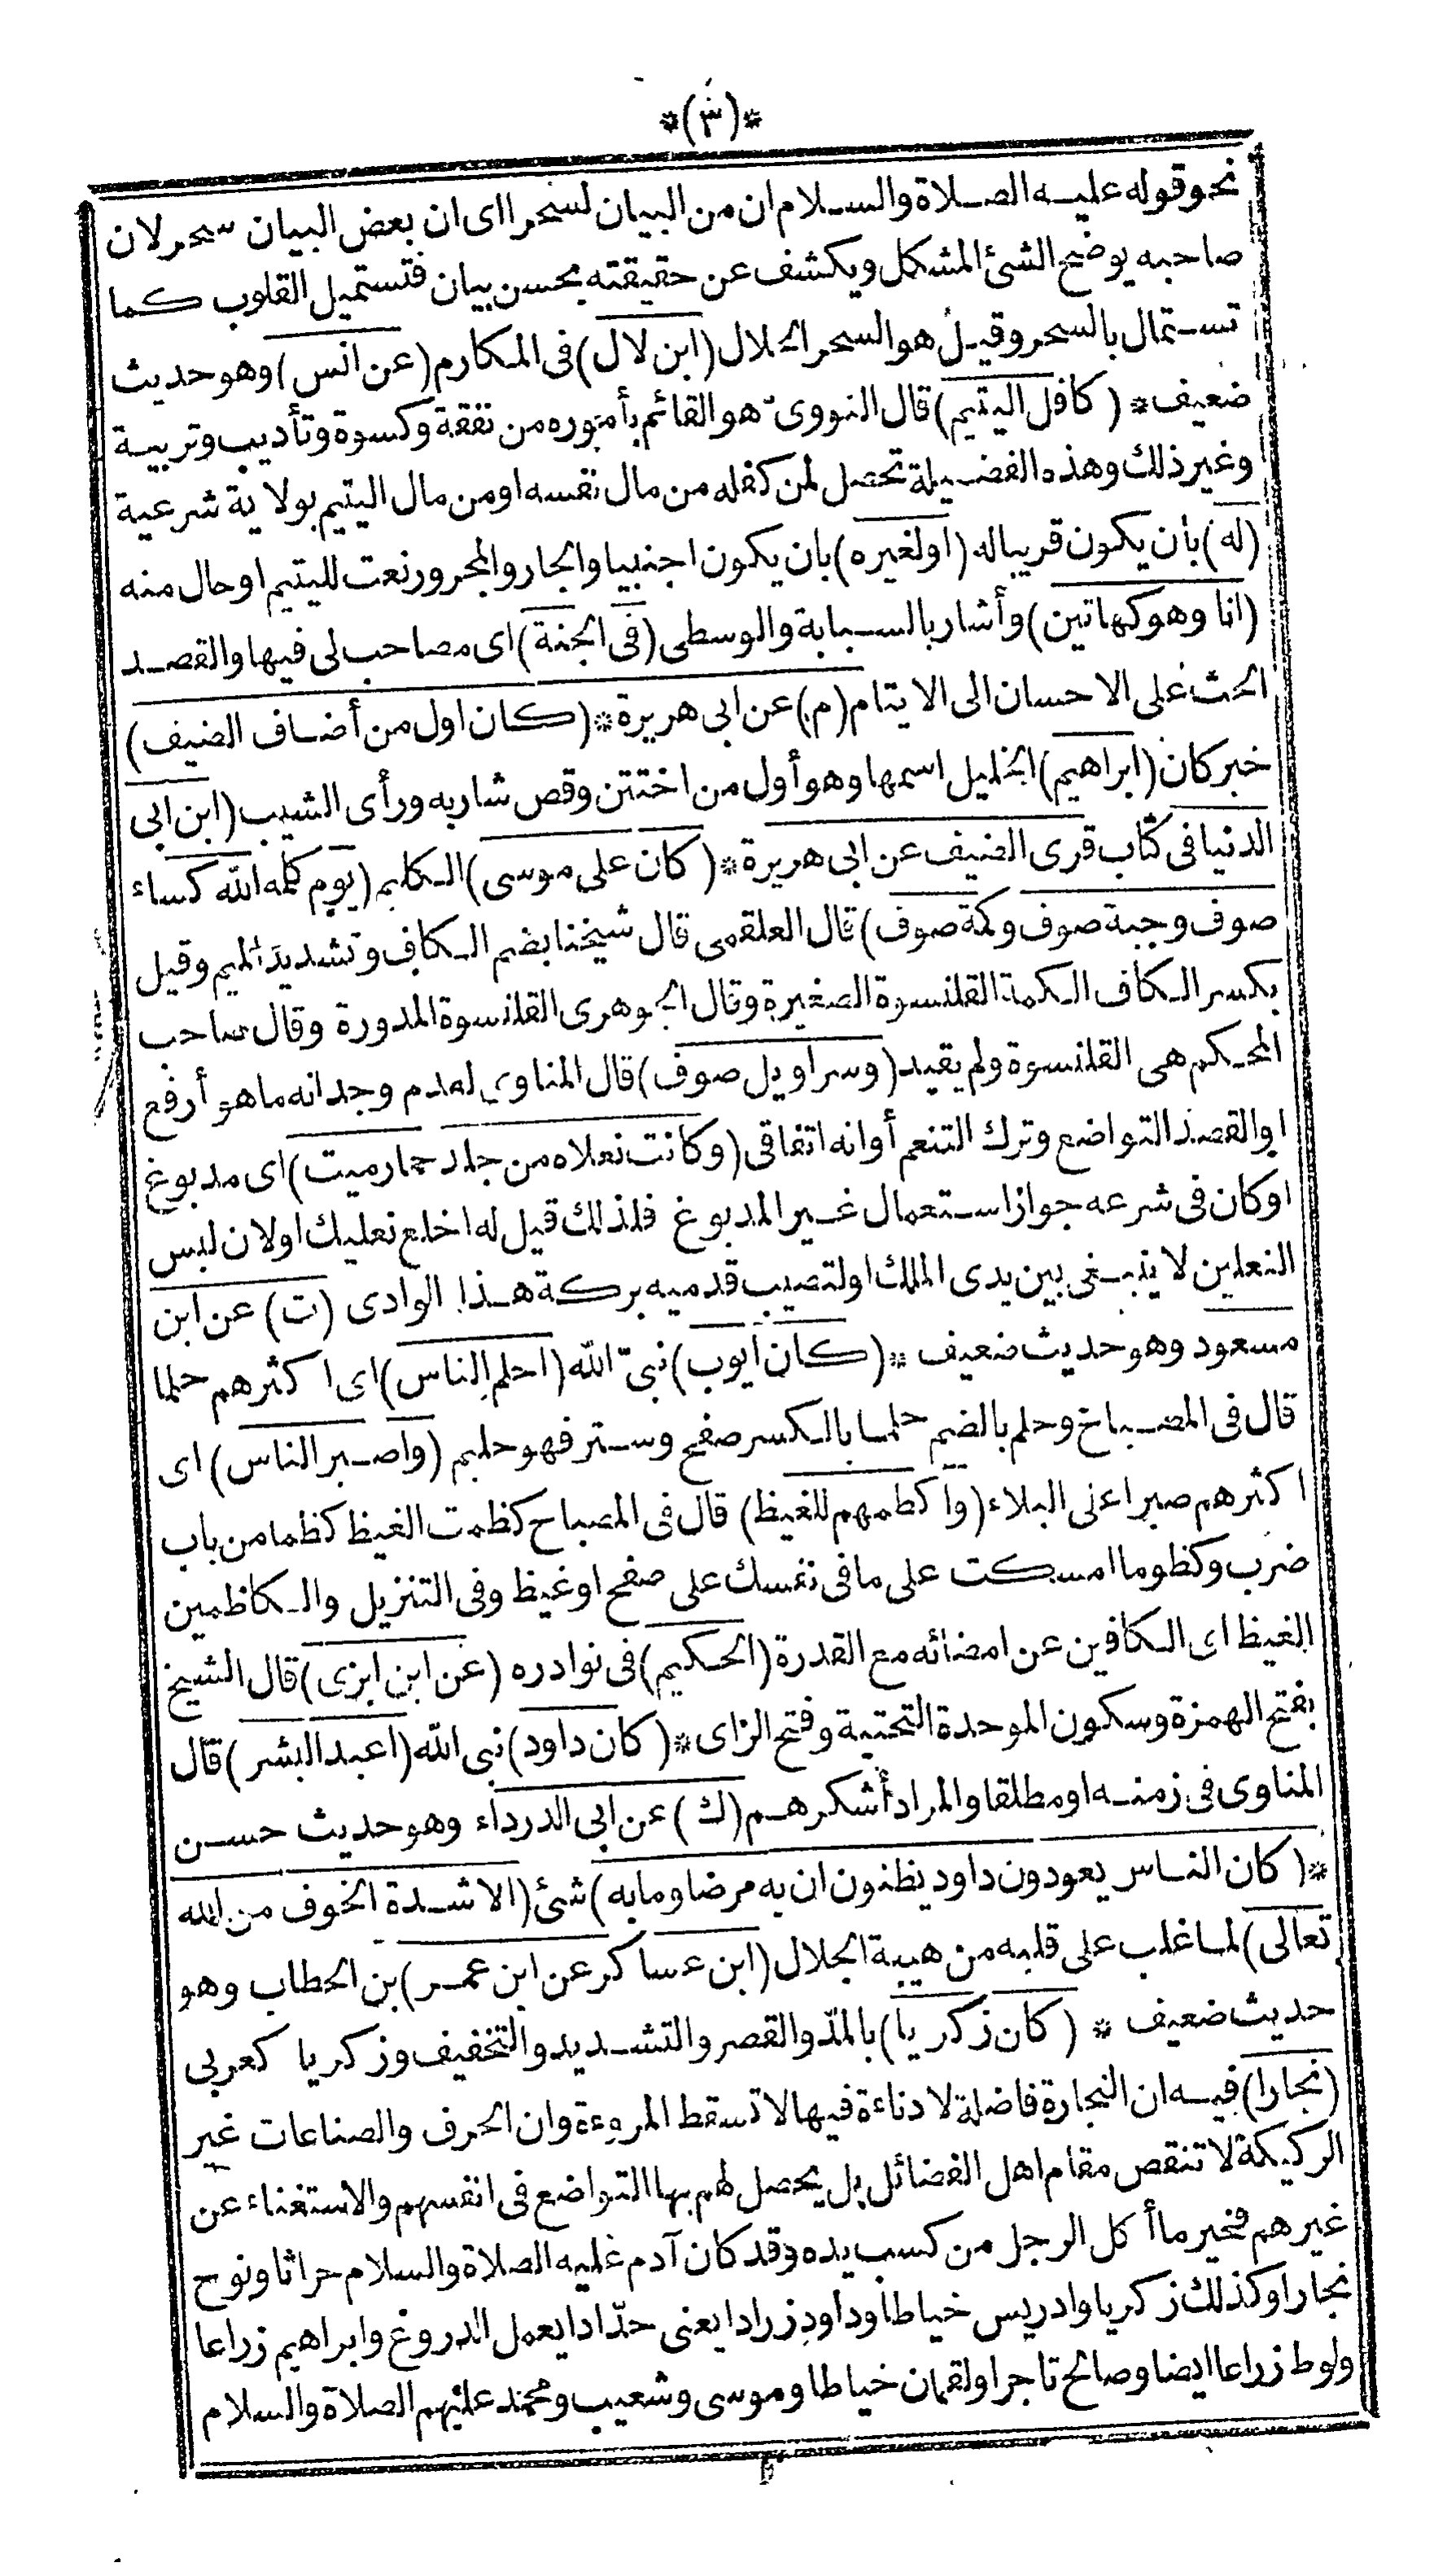 *(٣)*
نحو قوله عليه الصلاة والسلام ان من البيان لسحرا اى ان بعض البيان سحر لان
صاحبه يوضح الشئ المشكل ويكشف عن حقيقته بحسن بيان فتستميل القلوب كما
تستمال بالسحر وقيل هو السحر الحلال (ابن لال) فى المكارم (عن انس) وهو حديث
ضعيف * (كافل اليتيم) قال النووىّ هو القائم بأموره من نفقة وكسوة وتأديب وتربية
وغير ذلك وهذه الفضيلة تحصل لمن كفله من مال نفسه او من مال اليتيم بولاية شرعية
(له) بأن يكون قريبا له (او لغيره) بان يكون اجنبيا والجار والمجرور نعت لليتيم او حال منه
(انا وهو كهاتين) وأشار بالسبابة والوسطى (فى الجنة) اى مصاحب لى فيها والقصد
الحث على الاحسان الى الايتام (م) عن ابى هريرة * (كان اول من أضاف الضيف)
خبر كان (ابراهيم) الخليل اسمها وهو أول من اختتن وقص شاربه ورأى الشيب (ابن ابى
الدنيا فى كتاب قرى الضيف عن ابى هريرة * (كان على موسى) الكليم (يوم كلمه الله كساء
صوف وجبة صوف وكمة صوف) قال العلقمى قال شيخنا بضم الكاف وتشديد الميم وقيل
بكسر الكاف الكمة القلنسوة الصغيرة وقال الجوهرى القلنسوة المدورة وقال صاحب
المحكم هى القلنسوة ولم يقيد (وسراويل صوف) قال المناوى لعدم وجدانه ما هو أرفع
او القصد التواضع وترك التنعم أوانه اتفاقى (وكانت نعلاه من جلد حمار ميت) اى مدبوغ
او كان فى شرعه جواز استعمال غير المدبوغ فلذلك قيل له اخلع نعليك او لان لبس
النعلين لا ينبغى بين يدى الملك او لتصيب قدميه بركة هذا الوادى (ت) عن ابن
مسعود وهو حديث ضعيف * (كان أيوب) نبىّ الله (احلم الناس) اى اكثرهم حلما
قال فى المصباح وحلم بالضم حلما بالكسر صفح وستر فهو حليم (واصبر الناس) اى
اكثرهم صبرا على البلاء (واكظمهم للغيظ) قال فى المصباح كظمت الغيظ كظما من باب
ضرب وكظوما امسكت على ما فى نفسك على صفح او غيظ وفى التنزيل والكاظمين
الغيظ اى الكافين عن امضائه مع القدرة (الحكيم) فى نوادره (عن ابن ابزى) قال الشيخ
بفتح الهمزة وسكون الموحدة التحتية وفتح الزاى * (كان داود) نبى الله (اعبد البشر) قال
المناوى فى زمنه او مطلقا والمراد أشكرهم (ك) عن ابى الدرداء وهو حديث حسن
* (كان الناس يعودون داود يظنون ان به مرضا وما به) شئ (الا شدة الخوف من الله
تعالى) لما غلب على قلبه من هيبة الجلال (ابن عساكر عن ابن عمر) بن الخطاب وهو
حديث ضعيف * (كان زكريا) بالمدّ والقصر والتشديد والتخفيف وزكريا كعربى
(نجارا) فيه ان النجارة فاضلة لا دناءة فيها لا تسقط المروءة وان الحرف والصناعات غير
الركيكة لا تنقص مقام اهل الفضائل بل يحصل لهم بها التواضع فى انفسهم والاستغناء عن
غيرهم فخير ما أكل الرجل من كسب يده وقد كان آدم عليه الصلاة والسلام حراثا ونوح
نجارا وكذلك زكريا وادريس خياطا وداود زرادا يعنى حدّادا يعمل الدروع وابراهيم زراعا
ولوط زراعا ايضا وصالح تاجرا ولقمان خياطا وموسى وشعيب ومحمد عليهم الصلاة والسلام